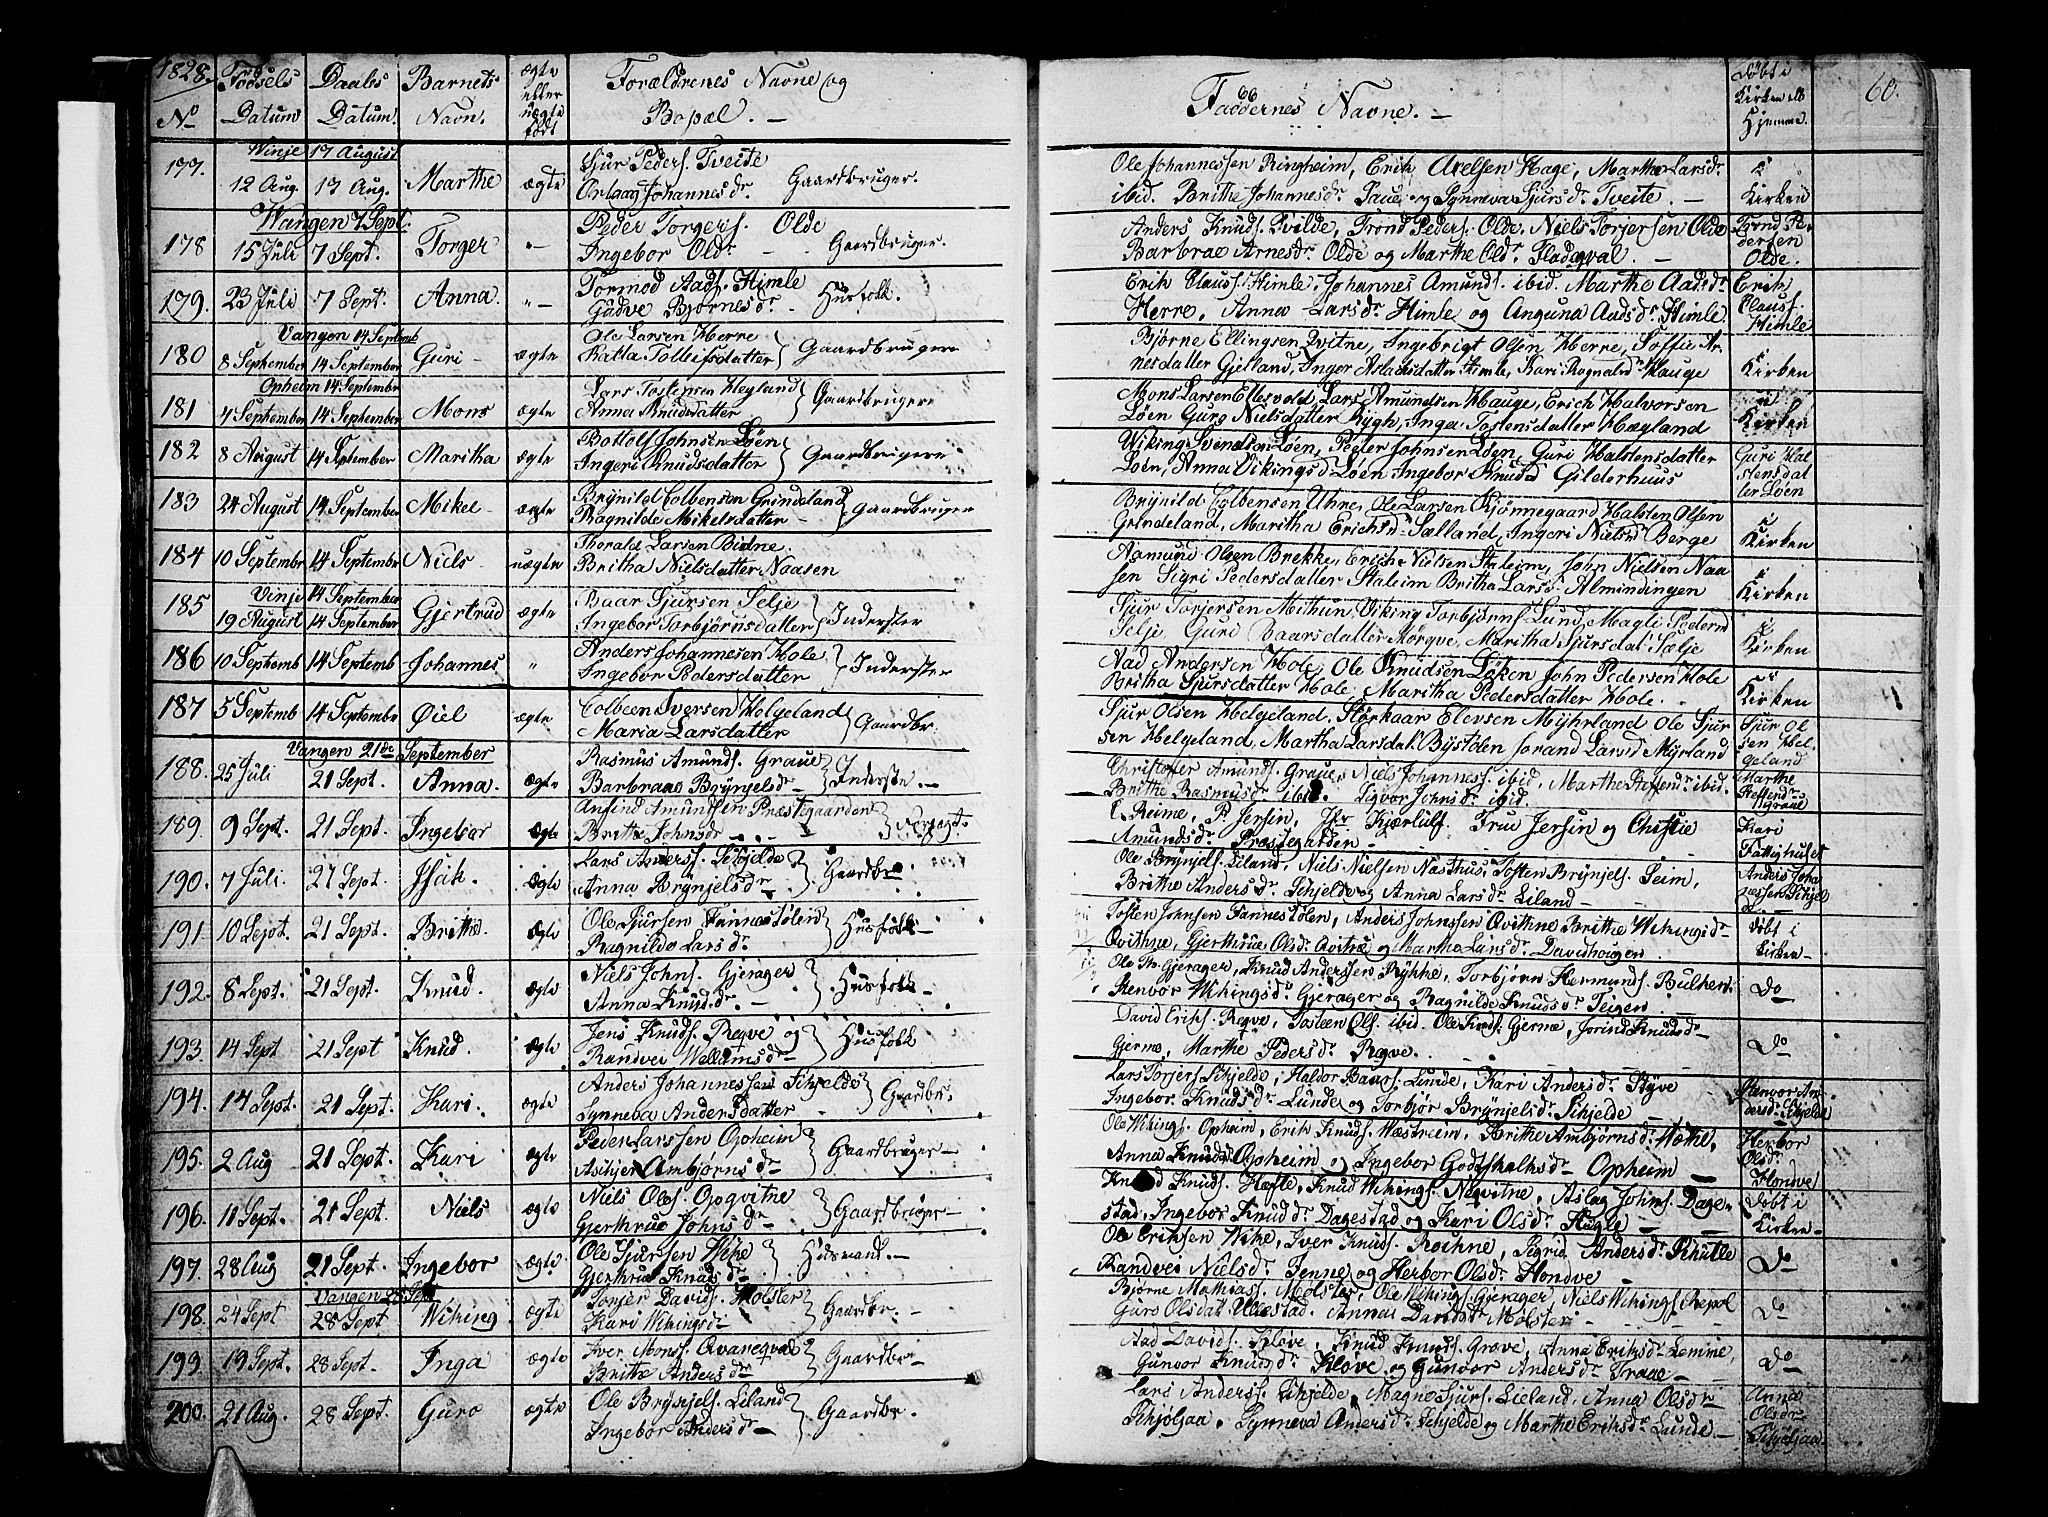 1828.
No
Fødsels Datum
Daabs Datum.
Barnets Navn.
ægte eller uægte født
Forældrenes Navne og Bopæl. —
Faddernes Navne. —
Døbt i Kirken ell. Hjemme.
60.
Winje 17 August
177. 12 Aug. 17 Aug. Marthe ægte
Sjur Peders. Tveite
Johannesdr. Gaardbruger.
Ole Johannessen Ringheim, Erik Axelsen Hage, Marthe Larsdr.
ibid. Brithe Johannesdr. Saue og Synneva Sjursdr. Tveite. —
i Kirken
Wangen 7 Sept.
178 15 Juli 7 Sept. Torger "-
Peder Torgers. Olde
Ingebor Oldr. - - Gaardbruger.
Anders Knuds. Qvilde, Trond Peders. Olde, Niels Torjersen Olde
Barbrae Arnesdr. Olde og Marthe Oldr. —
Trond Pedersen Olde.
179. 23 Juli 7 Sept. Anna "-
Tormod Aads. Himle
Gudve Bjørnesdr. Husfolk.
Erik Clauss. Himle, Johannes Amunds. ibid. Marthe Aadsdr.
Herre, Anna Larsdr. Himle og Anguna Aadsdr. Himle.
Erik Clauss. Himle
Vangen 14 Septemb
180 8 September 14 September Guri - ægte
Ole Larsen Herre
Batla Tolleifsdatter } Gaardbrugere
Bjørne Ellingsen Qvitne, Ingebrigt Olsen Herre, Soffie Ar-
nesdatter Gjelland, Inger Aslaksdatter Himle, Kari Rognaldsd Hauge
i Kirken
Opheim 14 September
181 4 September 14 September Mons ægte
Lars Tostensen Høyland
Anna Knudsdatter } Gaardbrugere
Mons Larsen Ellesvold Lars Amundsen Hauge, Erich Halvorsen
Løen Guro Nielsdatter Rygh, Inga Tostensdatter Høgland
i Kirken
182 8 August 14 September Maritha ægte
Bottolf Johnsen Løen
Ingeri Knudsdatter } Gaardbrugere
Wiking Svendsen Løen, Peder Johnsen Løen, Guri Halstensdatter
Løen, Anna Vikingsd Løen Ingebor Knudsd Gilderhuus
Guri Halstensdatter Løen
183 24 August 14 September Mikel - ægte
Brynild Colbensen Grindeland
Ragnilde Mikelsdatter - } Gaardbruger
Brynild Colbensen Uhne, Ole Larsen Kjønnegaard Halsten Olsen
Grindeland, Maritha Erichsd. Sælland, Ingeri Nielsd Berge
i Kirken
184 10 Septembr 14 September Niels - uægte
Thorald Larsen Bidne
Britha Nielsdatter Naasen
Aamund Olsen Brekke, Erich Nielsen Staleim, John Nielsen Naa-
sen Sigri Pedersdatter Staleim Britha Larsd. Almindingen
i Kirken
Vinje 14 September
185 19 August 14 September Gjertrud ægte
Baar Sjursen Selje
Ingebor Torbjørnsdatter } Inderster
Sjur Torjersen Mithun, Viking Torbjørns Lund, Magli Pedersd
Selje Guri Baarsdatter Rørgve, Maritha Sjursdat Sælje
i Kirken
186 10 Septemb 14 Septemb Johannes "
Anders Johannesen Hole
Ingebor Pedersdatter } Inderster
Aad Andersen Hole, Ole Knudsen Løken John Pedersen Hole
Britha Sjursdatter Hole, Maritha Pedersdatter Hole.
i Kirken
187 5 Septemb 14 Septembr Øiel ægte
Colbeen Iversen Helgeland
Maria Larsdatter } Gaardbr.
Sjur Olsen Helgeland, Størkaar Elevsen Myhrland Ole Sjur-
sen Helgeland, Martha Larsdat. Bystølen Jorand Larsd Myrland
Sjur Olsen Helgeland
Vangen 21de September
188. 25 Juli 21 Sept. Anna. ægte
Rasmus Amunds. Graue
Barbraae Brynjelsdr. - } Inderste. —
Christoffer Amunds. Graue, Niels Johanness. ibid, Marthe Steffendr. ibid.
Brithe Rasmusdr. ibid. Sigvor Johnsdr. ibid.
Marthe Steffendr. Graue
189. 9 Sept. 21 Sept. Ingebor ægte
Anfind Amundsen Præstgaarden
Brithe Johnsdr
E. Reime, P Jersin, Kjærlulf. Fru Jersin og Christie
Amundsdr. Præstegarden
Kari Fattighuset
190. 7 Juli. 21 Sept. Isak. Ægte
Lars Anders. Schjelde
Anna Brynjelsdr } Gaardbr.
Ole Brynjels. Liland, Niels Nielsen Næsthus, Tosten Brynjels. Seim,
Brithe Andersdr. Schjelde og Anna Larsdr. Liland —
Anders Johannessen Skjelde.
191. 10 Sept. 21 Sept. Brithe. Ægte
Ole Sjursen Fannestølen
Ragnilde Larsdr. } Husfolk —
Tosten Johnsen Fannestølen, Anders Johnssen Qvithne Brithe Wikingsdr.
Qvithne, Gjerthrue Olsdr. Qvitne og Martha Larsdr. Davidhougen
Døbt i Kirken —
192. 8 Sept. 21 Sept. Knud ægte
Niels Johns. Gjerager
Anna Knudsdr. — } Husfolk —
Ole Th. Gjerager, Knud Anderssen Rykke, Torbjørn Hermunds. Bulken,
Stenvor Wikingsdr. Gjerager og Ragnilde Knudsdr. Teigen.
Do
193. 14 Sept 21 Sept Knud. ægte
Jens Knuds. Reqve og
Randvei Wellumsdr — } Husfolk
David Erichs. Reqve, Tosteen Ols. ibid. Ole Knuds. Gjerme, Jorind Knudsdr —
Gjerme, Marthe Pedersdr. Reqve. —
Do
194. 17 Sept. 21 Sept. Kari. ægte
Anders Johannessen Schjelde
Synneva Andersdatter } Gaardbr.
Lars Torjers. Schjelde, Haldor Baars. Lunde, Kari Andersdr. Styve
Ingebor Knudsdr. Lunde og Torbjør Brynjelsdr. Schjelde —
Stenvor Andersdr. Schjelde
195. 2 Aug 21 Sept. Kari ægte
Peder Larssen Opheim
Asthjer Ambjørnsdr } Gaardbruger —
Ole Wikings. Opheim, Erik Knuds. Mestreim, Brithe Ambjørnsdr. Hæfte,
Anna Knudsd Opheim og Ingebor Godtshalksdr. Opheim —
Herbor Olsdr. Hondve
196. 11 Sept. 21 Sept. Niels ægte
Niels Ols. Opqvitne
Gjerthrue Johnsdr } Gaardbrüger —
Knud Knuds. Hæfte, Knud Wikings. Neqvitne, Aslag Johns. Dage-
stad, Ingebor Knudsdr. Dagestad og Kari Olsdr. Hæfte —
Døbt i Kirken —
197. 28 Aug 21 Sept. Ingebor ægte
Ole Sjursen Wike
Gjerthrue Knudsdr } Husmand. —
Ole Eriksen Wike, Iver Knuds. Rothne, Sigrid Andersdr. Skutle
Randvei Nielsdr. Jenne og Herbor Olsdr. Hondve —
Do
Vangen 28 Sept
198. 24 Sept 28 Sept Wiking ægte
Torjer Davids. Mølster
Kari Wikingsdr } Gaardbr. —
Bjørne Mathias. Mølster, Ole Wikings. Gjerager, Niels Wikings. Repol
Guro Olsdat Ullestad, Anna Davidsdr Mølster
Do
199. 19 Sept. 28 Sept. Inga ægte
Iver Mons. Qvaneqval
Brithe Andersdr } Gaardbr.
Aad Davids. Kløve, Knud Knuds. Grove, Anna Eriksdr. Lemme,
Gunvor Knudsdr. Kløve og Gunvor Andersdr. Traae —
Do
200. 21 Aug. 28 Sept. Guro ægte
Ole Brynjels. Liland
Ingebor Andersdr — } Gaardbr.
Lars Anderss. Schjelde, Magne Sjurs. Lieland, Anna Olsdr.
Schjelgaa, Synneva Andersdr. Schjelde og Marthe Eriksdr. Lunde. —
Anna Olsdr.